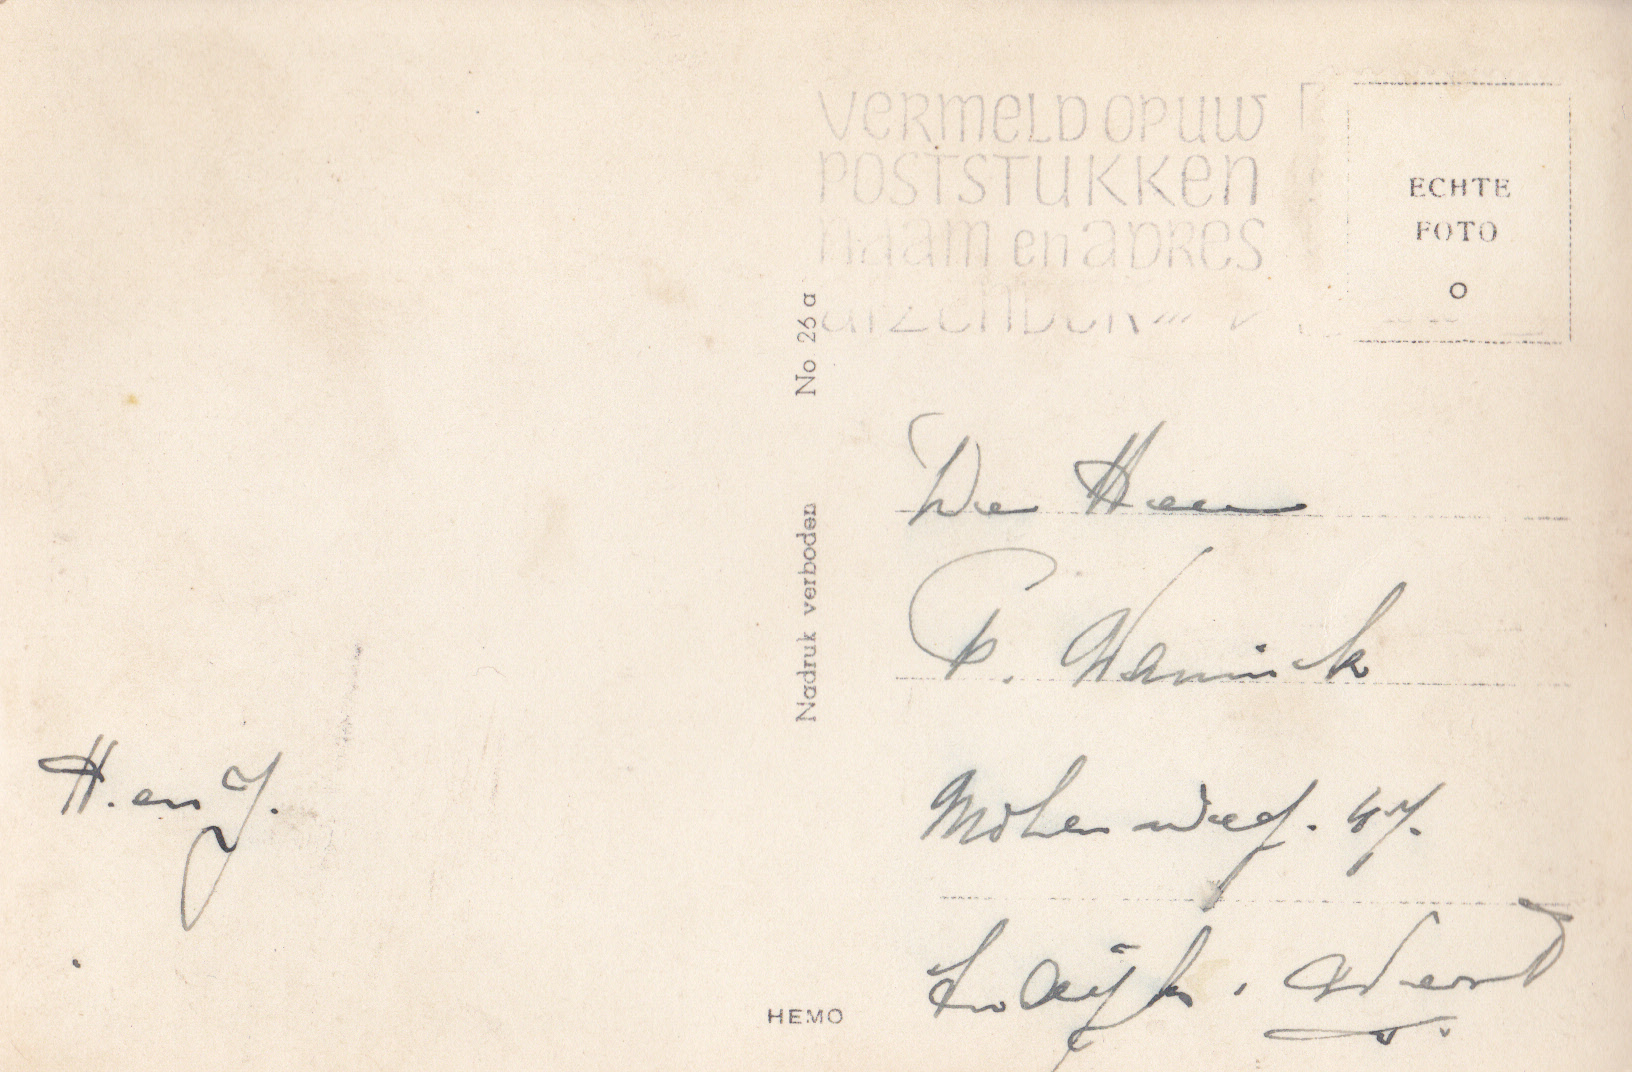 VERMELD OP UW
POSTSTUKKEN
NAAM en ADRES
AFZENDER
ECHTE
FOTO
O
No 26 a
Nadruk verboden
De Heer
P. Wannink
Molenweg. 47.
H. en J.
HEMO